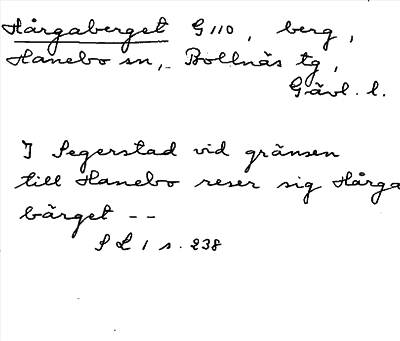 Hårgaberget G 110, berg,
Hanebo sn, Bollnäs tg,
Gävl. l.
I Segerstad vid gränsen
till Hanebo reser sig Hårga
bärget - -
S L 1 s. 238